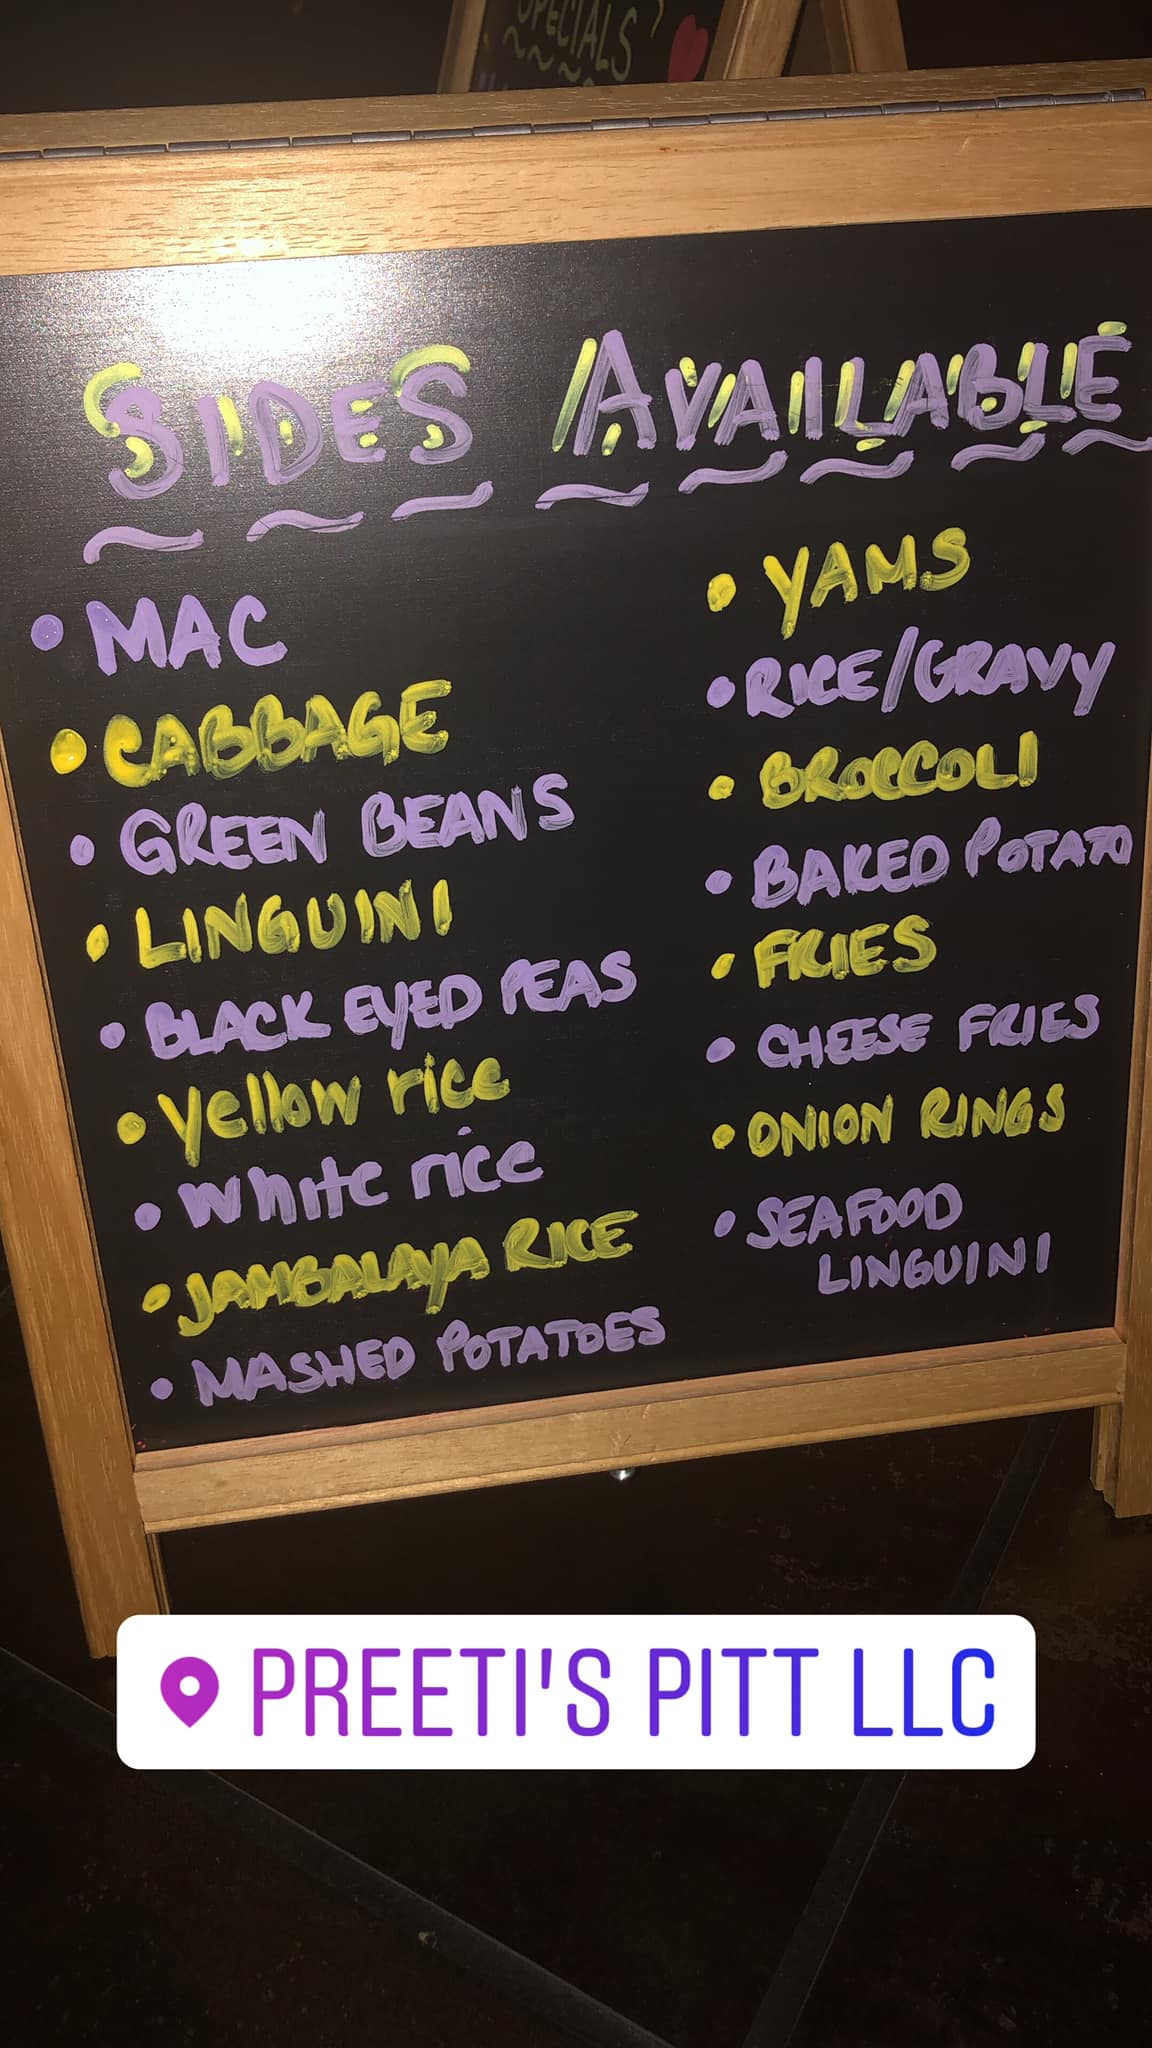 SPECIALS
SIDES AVAILABLE
• MAC
• CABBAGE
• GREEN BEANS
• LINGUINI
• BLACK EYED PEAS
• Yellow rice
• White rice
• JAMBALAYA RICE
• MASHED POTATOES
• YAMS
• RICE/GRAVY
• BROCCOLI
• BAKED POTATO
• FRIES
• CHEESE FRIES
• ONION RINGS
• SEAFOOD
LINGUINI
PREETI'S PITT LLC